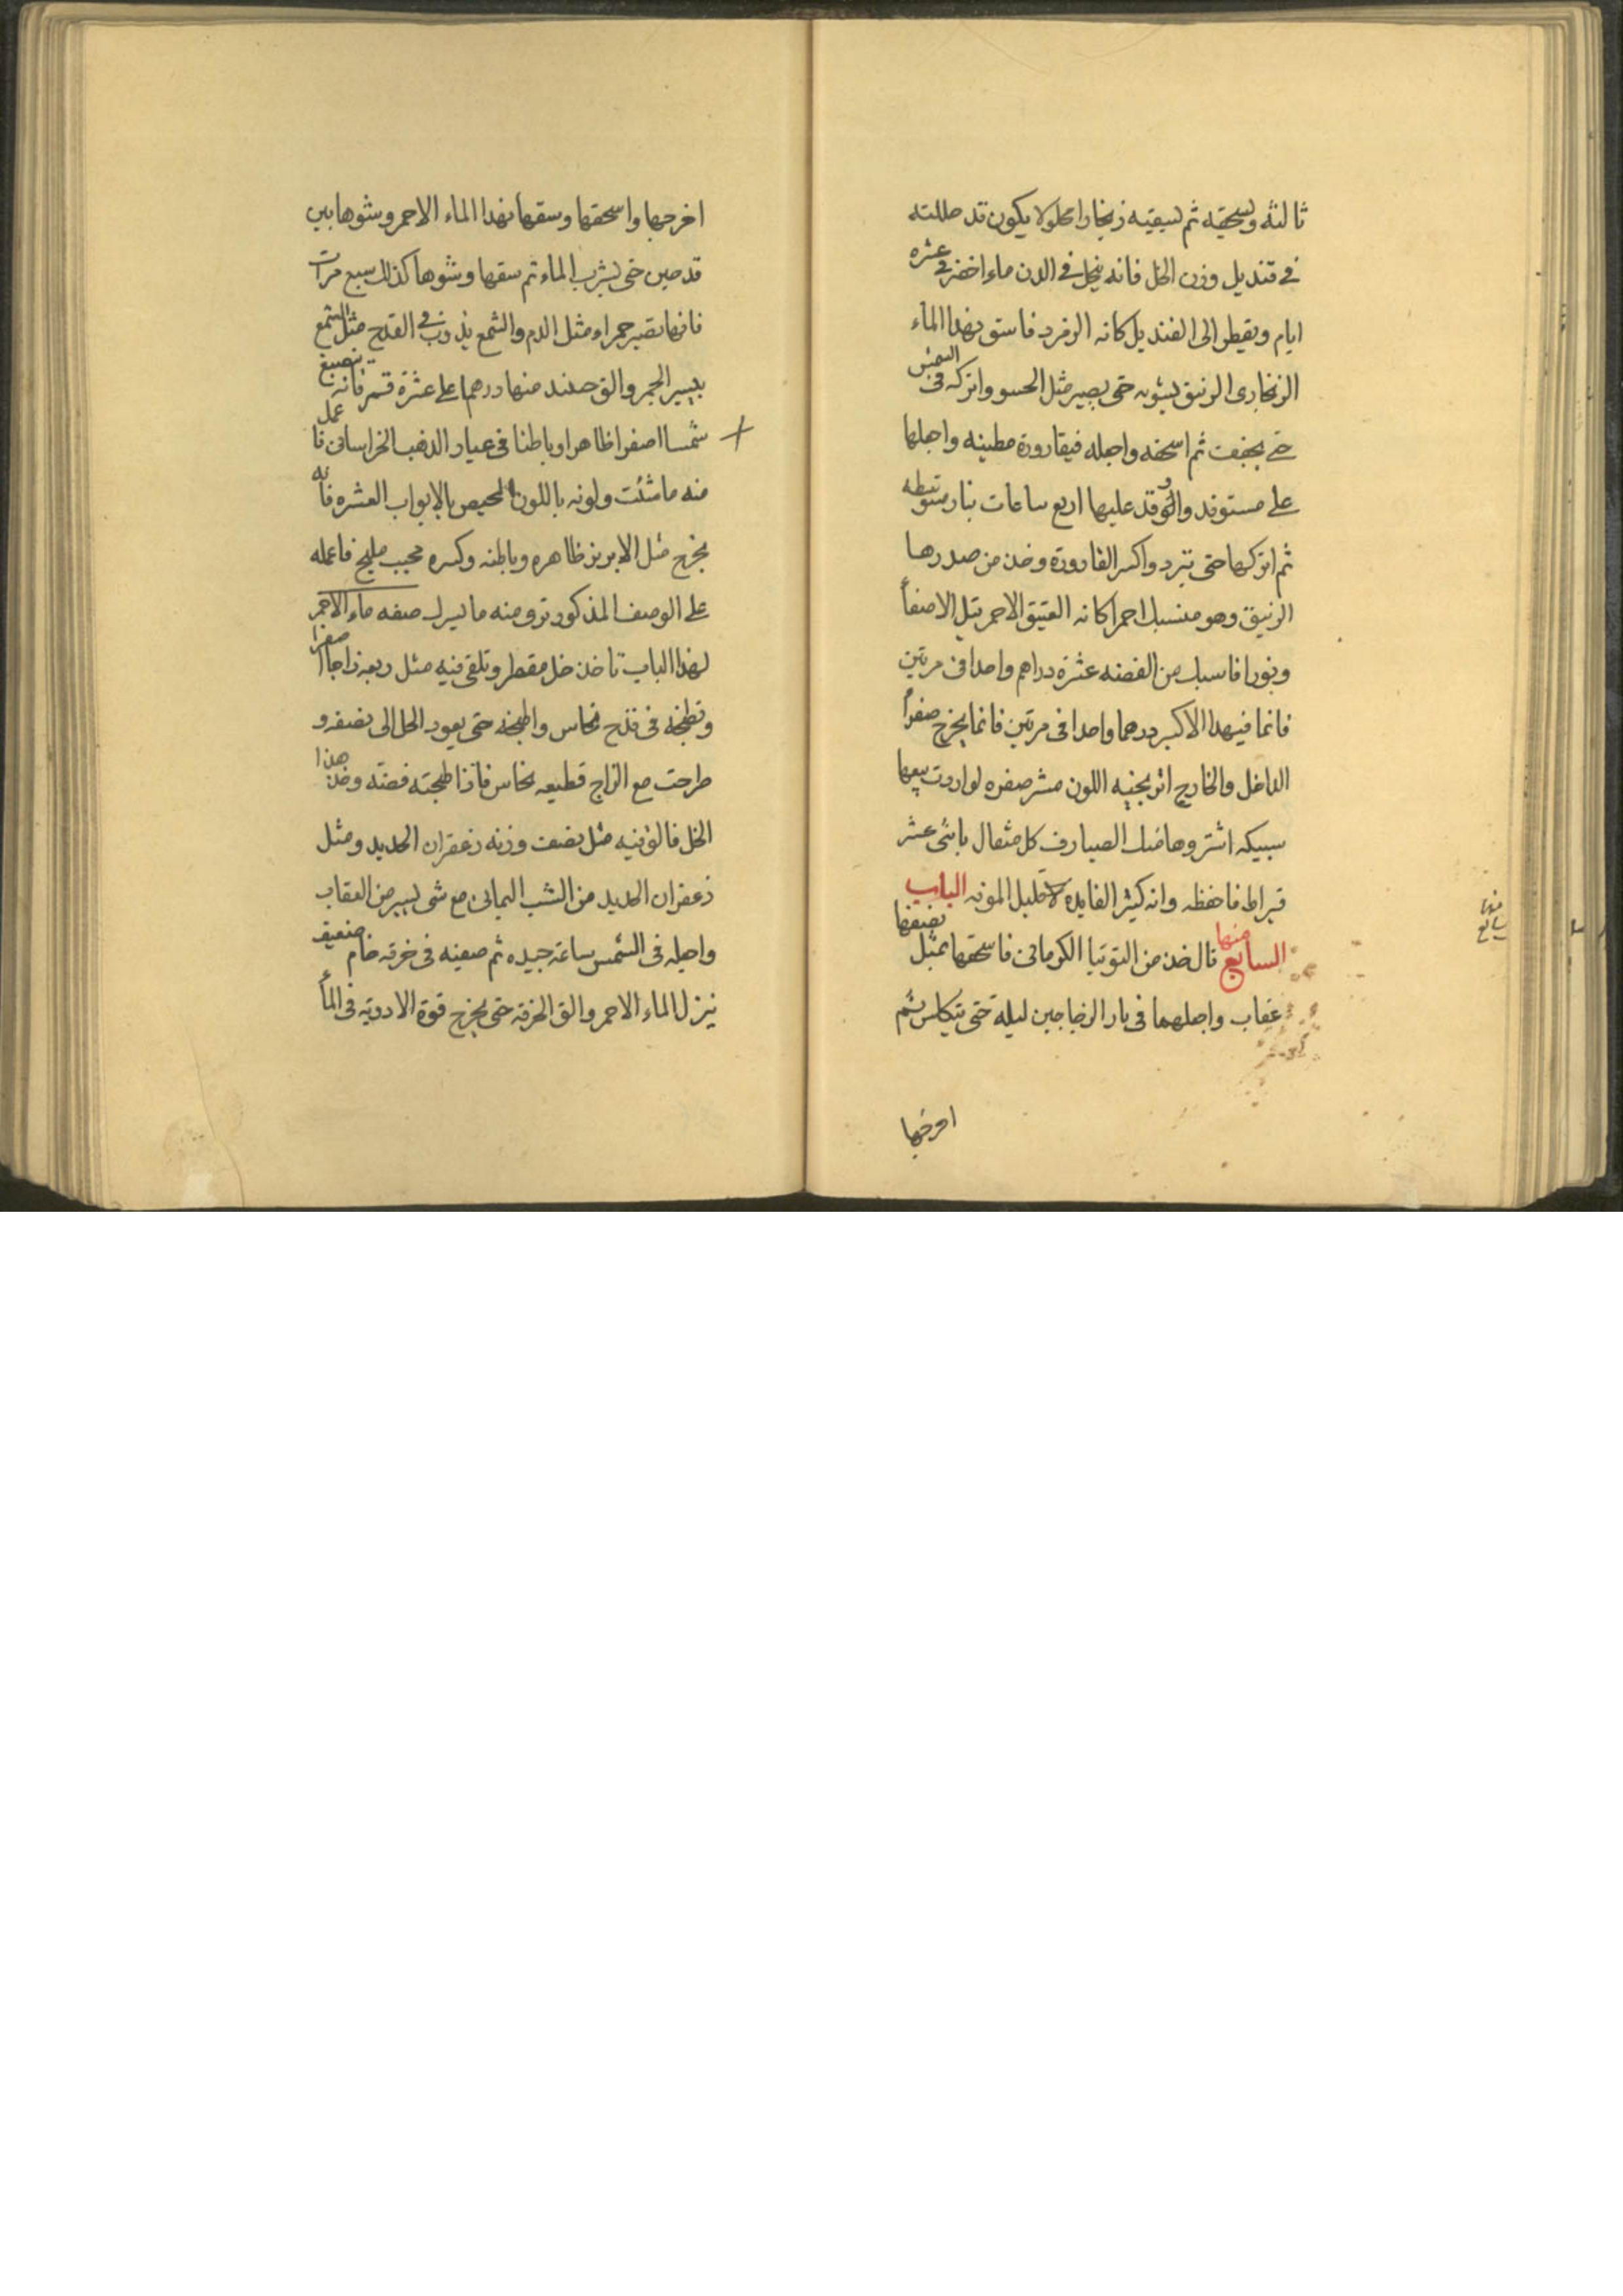 ثالثه وتسحقه ثم تسقيه زنجارا محلولا يكون قد حللته
في قنديل وزن الخل فانه ينحل في الدن ماء اخضر في عشره
ايام ويقطر الى القنديل كانه الزمرد فاسق بهذا الماء
الزنجارى الزيبق تشويه حتى يصير مثل الحسو واتركه فى الشمس
حتى يجفف ثم اسحقه واجعله فيقارورة مطينه واجعلها
على مستوقد واوقد عليها اربع ساعات بنار متوسطه
ثم اتركها حتى تبرد واكسر القارورة وخذ من صدرها
الزيبق وهو منسبك احمر كانه العقيق الاحمر
ونورا فاسبك من الفضه عشرة دراهم واحدا فى مرتين
فانما فيهذا الاكسير درهما واحدا فى مرتين فانما يخرج صفرا
الداخل والخارج اترجنيه اللون صفره لو اردت بيعها
سبيكه اشتروها منك الصيارف كل مثقال باثنى عشر
قيراط فاحفظه وانه كثير الفايده قليل المونه الباب
السابع منها قال خذ من التوتيا الكرمانى فاسحقها بمثل نصفها
عقاب واجعلهما فى نار الزجاجين ليله حتى تتكلس ثم
اخرجها
منها
سابع
اخرجها واسحقها وسقها بهذا الماء الاحمر وشوها بين
قدحين حتى يشرب الماء ثم سقها وشوها كذلك سبع مرات
فانها تصير حمراء مثل الدم والشمع يذوب في القدح مثل الشمع
بيسير الجمر والق حينئذ منها درهما على عشرة قمر فانه ينصبغ
شمسا اصفرا ظاهرا وباطنا فى عيار الذهب الخراسانى فاعمل
منه ما شئت ولونه باللون المحيص بالابواب العشره فانه
يخرج مثل الابريز ظاهره وباطنه وكسره عجيب مليح فاعمله
على الوصف المذكور ترى منه ما يسرك صفه ماء الاحمر
لهذا الباب تاخذ خل مقطر وتلقى فيه مثل ربعه زاجا اصفرا
وتطبخه فى قدح نحاس واطبخه حتى يعود الخل الى نصفه و
طرحت مع الزاج قطيعه نحاس فاذا طبخته فصفه وخذ هذا
الخل فالق فيه مثل نصف وزنه زعفران الحديد ومثل
زعفران الحديد من الشب اليمانى مع شى يسير من العقاب
واجعله فى الشمس ساعة جيده ثم صفيه فى خرقه خام صفيق
ينزل الماء الاحمر والق الخرقه حتى يخرج قوة الادوية فى الماء